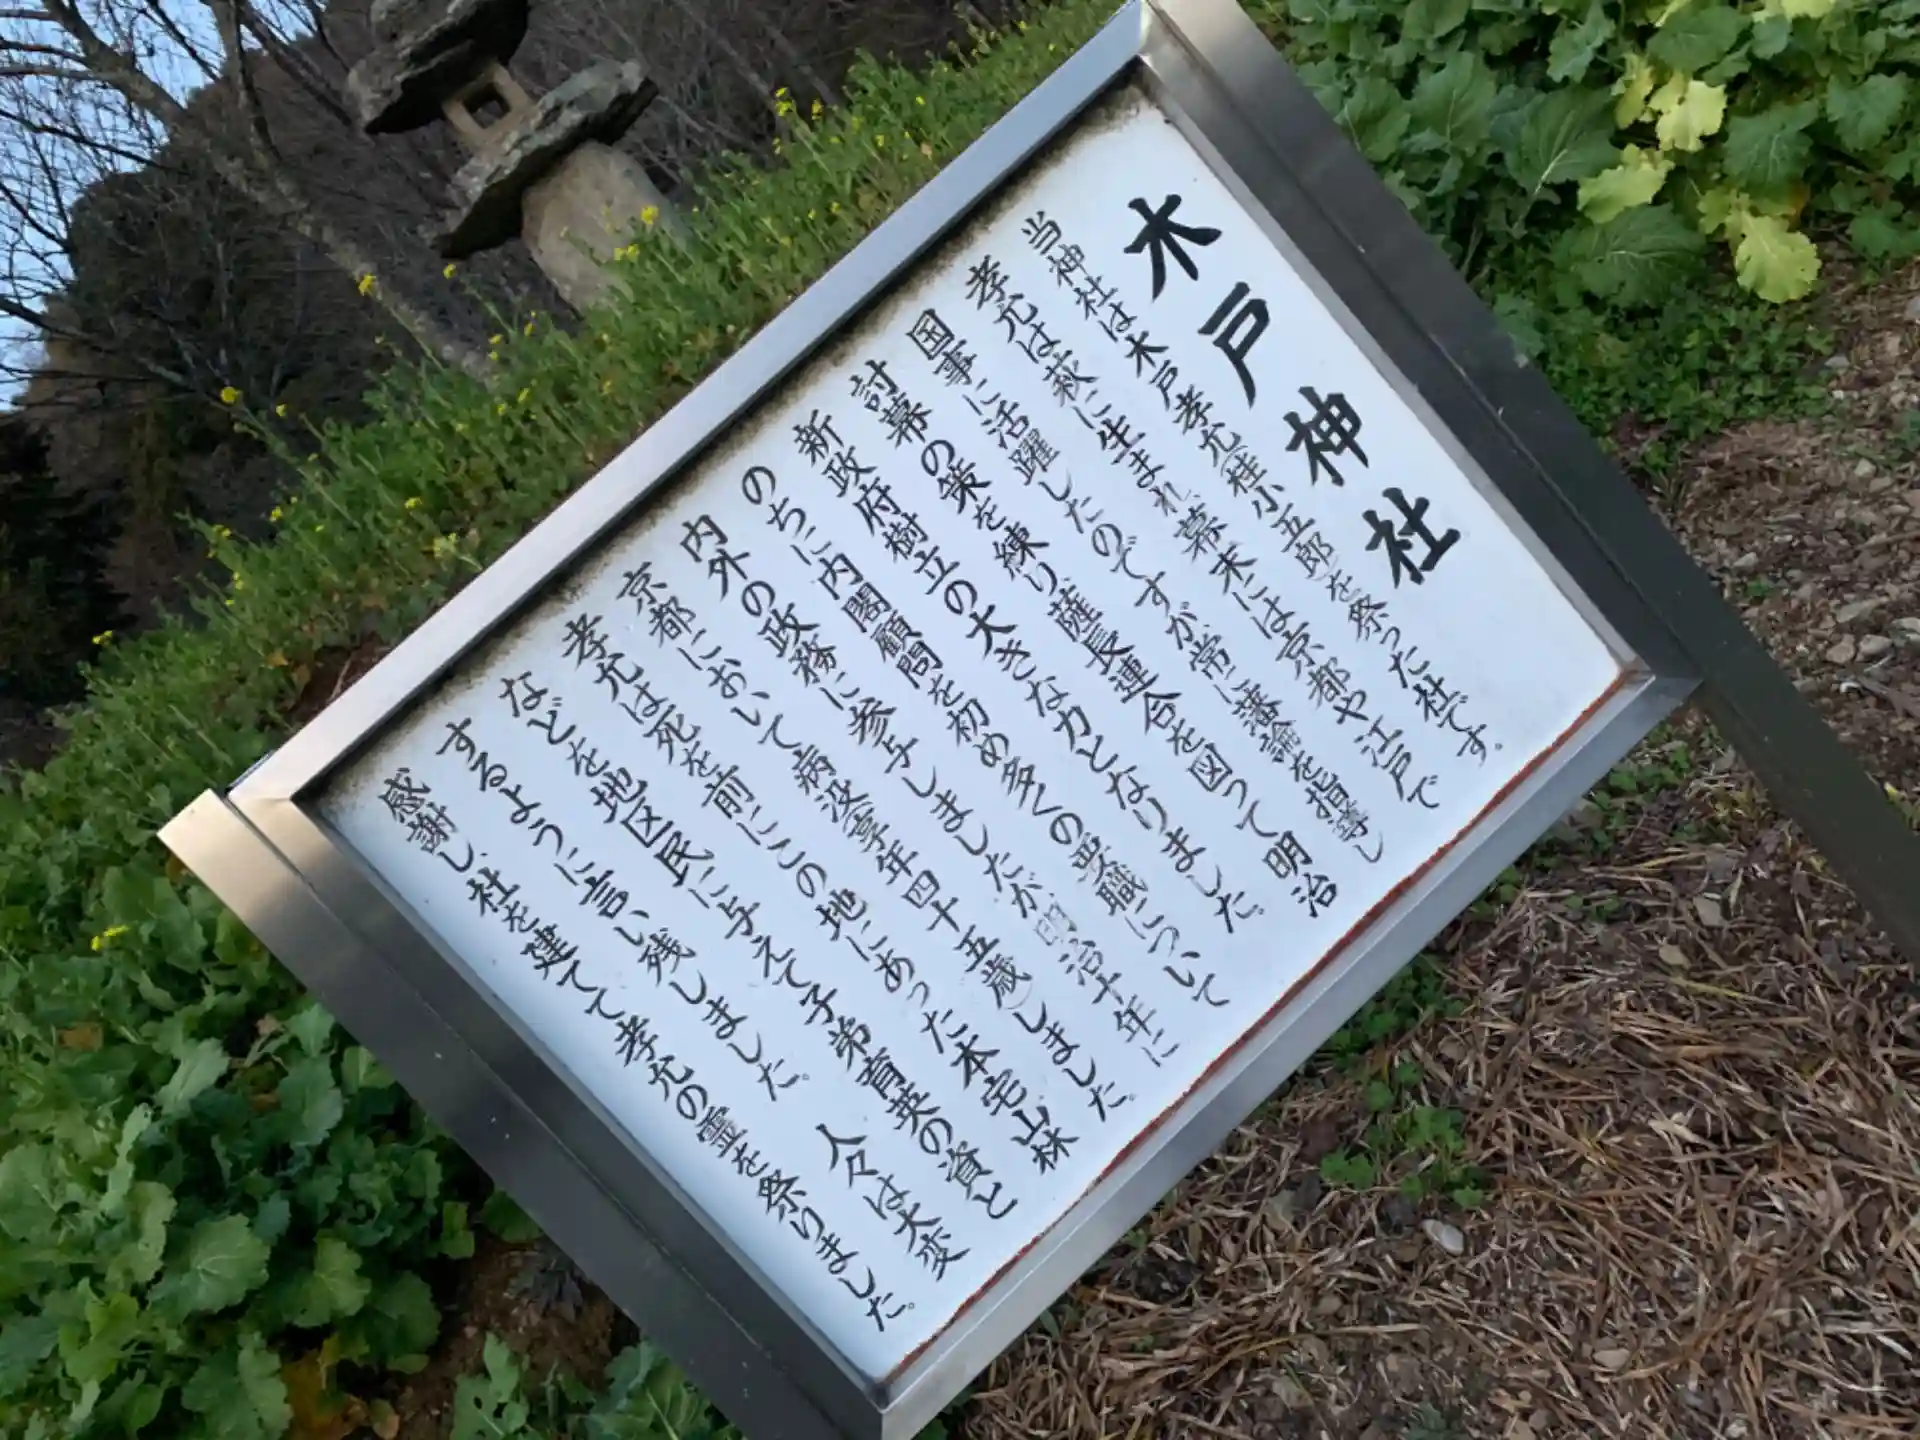 木戸神社
当神社は木戸孝允(桂小五郎)を祭った社です。
孝允は萩に生まれ、幕末には京都や江戸で
国事に活躍したのですが、常に藩論を指導し
討幕の策を練り、薩長連合を図って明治
新政府樹立の大きな力となりました。
のちに内閣顧問を初め多くの要職について
内外の政務に参与しましたが、明治十年に
京都において病没(享年四十五歳)しました。
孝允は死を前にこの地にあった本宅、山林
などを地区民に与えて子弟育英の資と
するように言い残しました。人々は大変
感謝し、社を建てて孝允の霊を祭りました。